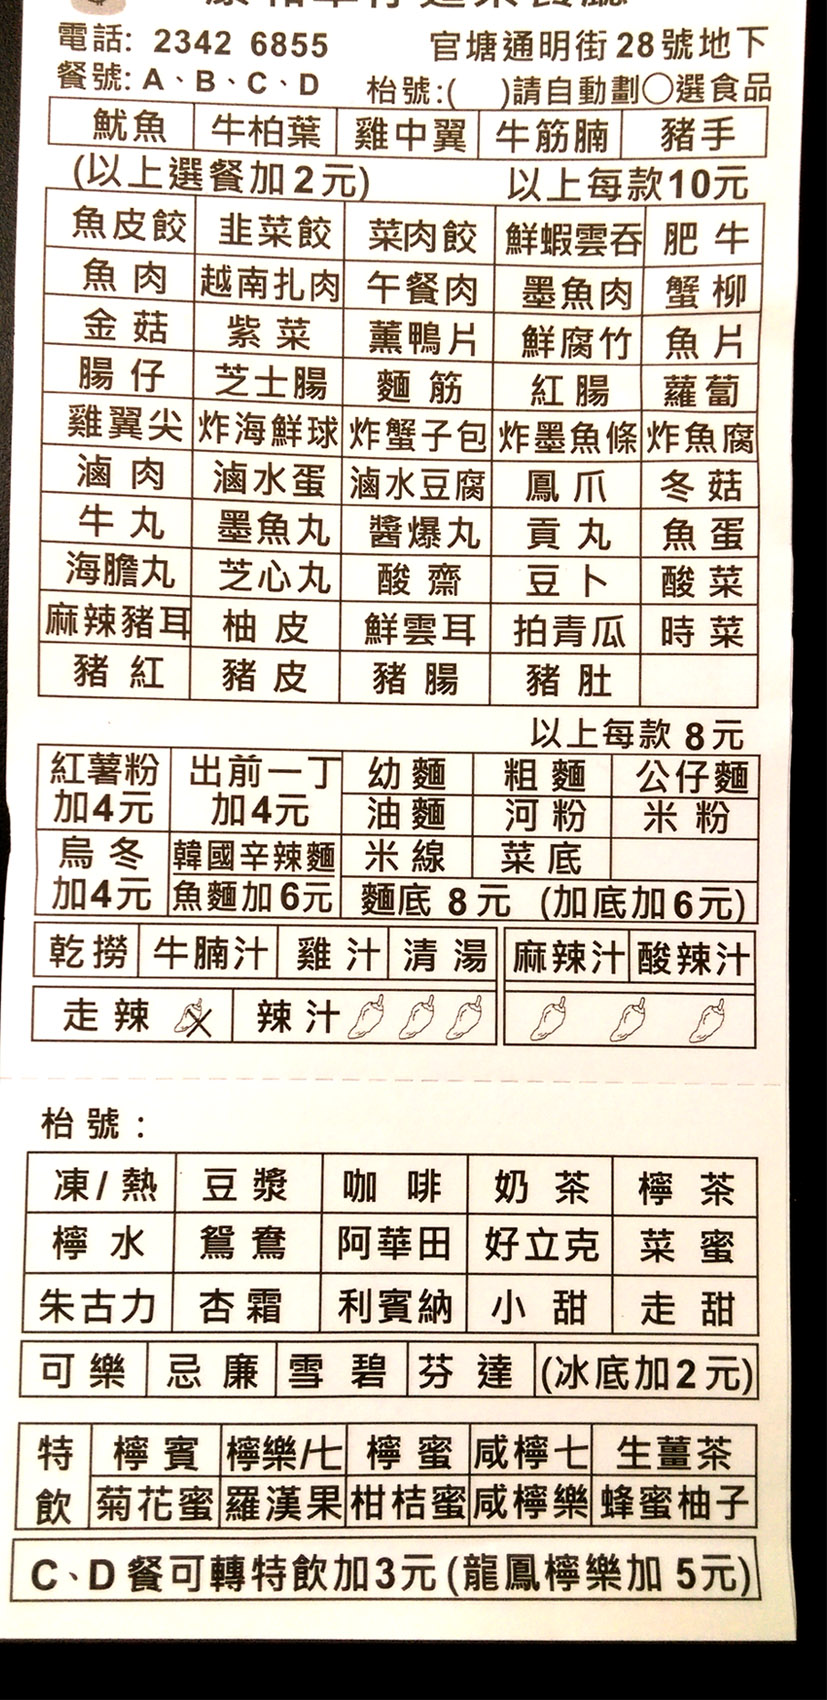 電話: 2342 6855 官塘通明街28號地下
餐號: A、B、C、D 枱號:( )請自動劃○選食品
魷魚 牛柏葉 雞中翼 牛筋腩 豬手
(以上選餐加2元) 以上每款10元
魚皮餃 韭菜餃 菜肉餃 鮮蝦雲吞 肥牛
魚肉 越南扎肉 午餐肉 墨魚肉 蟹柳
金菇 紫菜 薰鴨片 鮮腐竹 魚片
腸仔 芝士腸 麵筋 紅腸 蘿蔔
雞翼尖 炸海鮮球 炸蟹子包 炸墨魚條 炸魚腐
滷肉 滷水蛋 滷水豆腐 鳳爪 冬菇
牛丸 墨魚丸 醬爆丸 貢丸 魚蛋
海膽丸 芝心丸 酸齋 豆卜 酸菜
麻辣豬耳 柚皮 鮮雲耳 拍青瓜 時菜
豬紅 豬皮 豬腸 豬肚
以上每款 8元
紅薯粉 出前一丁 幼麵 粗麵 公仔麵
加4元 加4元 油麵 河粉 米粉
烏冬 韓國辛辣麵 米線 菜底
加4元 魚麵加6元 麵底 8元 (加底加6元)
乾撈 牛腩汁 雞汁 清湯 麻辣汁 酸辣汁
走辣 辣汁
枱號:
凍/熱 豆漿 咖啡 奶茶 檸茶
檸水 鴛鴦 阿華田 好立克 菜蜜
朱古力 杏霜 利賓納 小甜 走甜
可樂 忌廉 雪碧 芬達 (冰底加2元)
特飲 檸賓 檸樂/七 檸蜜 咸檸七 生薑茶
菊花蜜 羅漢果 柑桔蜜 咸檸樂 蜂蜜柚子
C、D餐可轉特飲加3元(龍鳳檸樂加 5元)